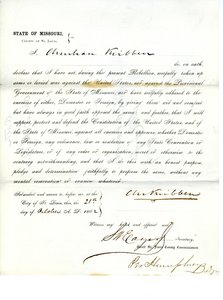 STATE OF MISSOURI,
County of St. Louis.
I, Christian Kribben
do on oath
declare that I have not, during the present Rebellion, wilfully taken up
arms or levied war against the United States, nor against the Provisional
Government of the State of Missouri, nor have wilfully adhered to the
enemies of either, Domestic or Foreign, by giving them aid and comfort
but have always in good faith opposed the same; and further, that I will
support, protect and defend the Constitution of the United States, and of
the State of Missouri, against all enemies and opposers, whether Domestic
or Foreign, any ordinance, law or resolution of any State Convention or
Legislature, or of any order or organization, secret or otherwise, to the
contrary notwithstanding; and that I do this with an honest purpose,
pledge and determination faithfully to perform the same, without any
mental reservation or evasion whatever.
Subscribed and sworn to before me, at the
City of St. Louis, this, the
day of October A. D. 1862
Chr. Kribben
Witness my hand and official seal
Secretary,